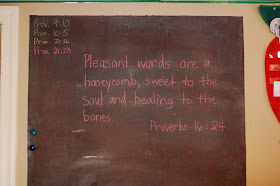 Prov. 9:10
Prov. 10:5
Prov. 21:23
Pleasant words are a
honeycomb, sweet to the
soul and healing to the
bones.
Proverbs 16:24